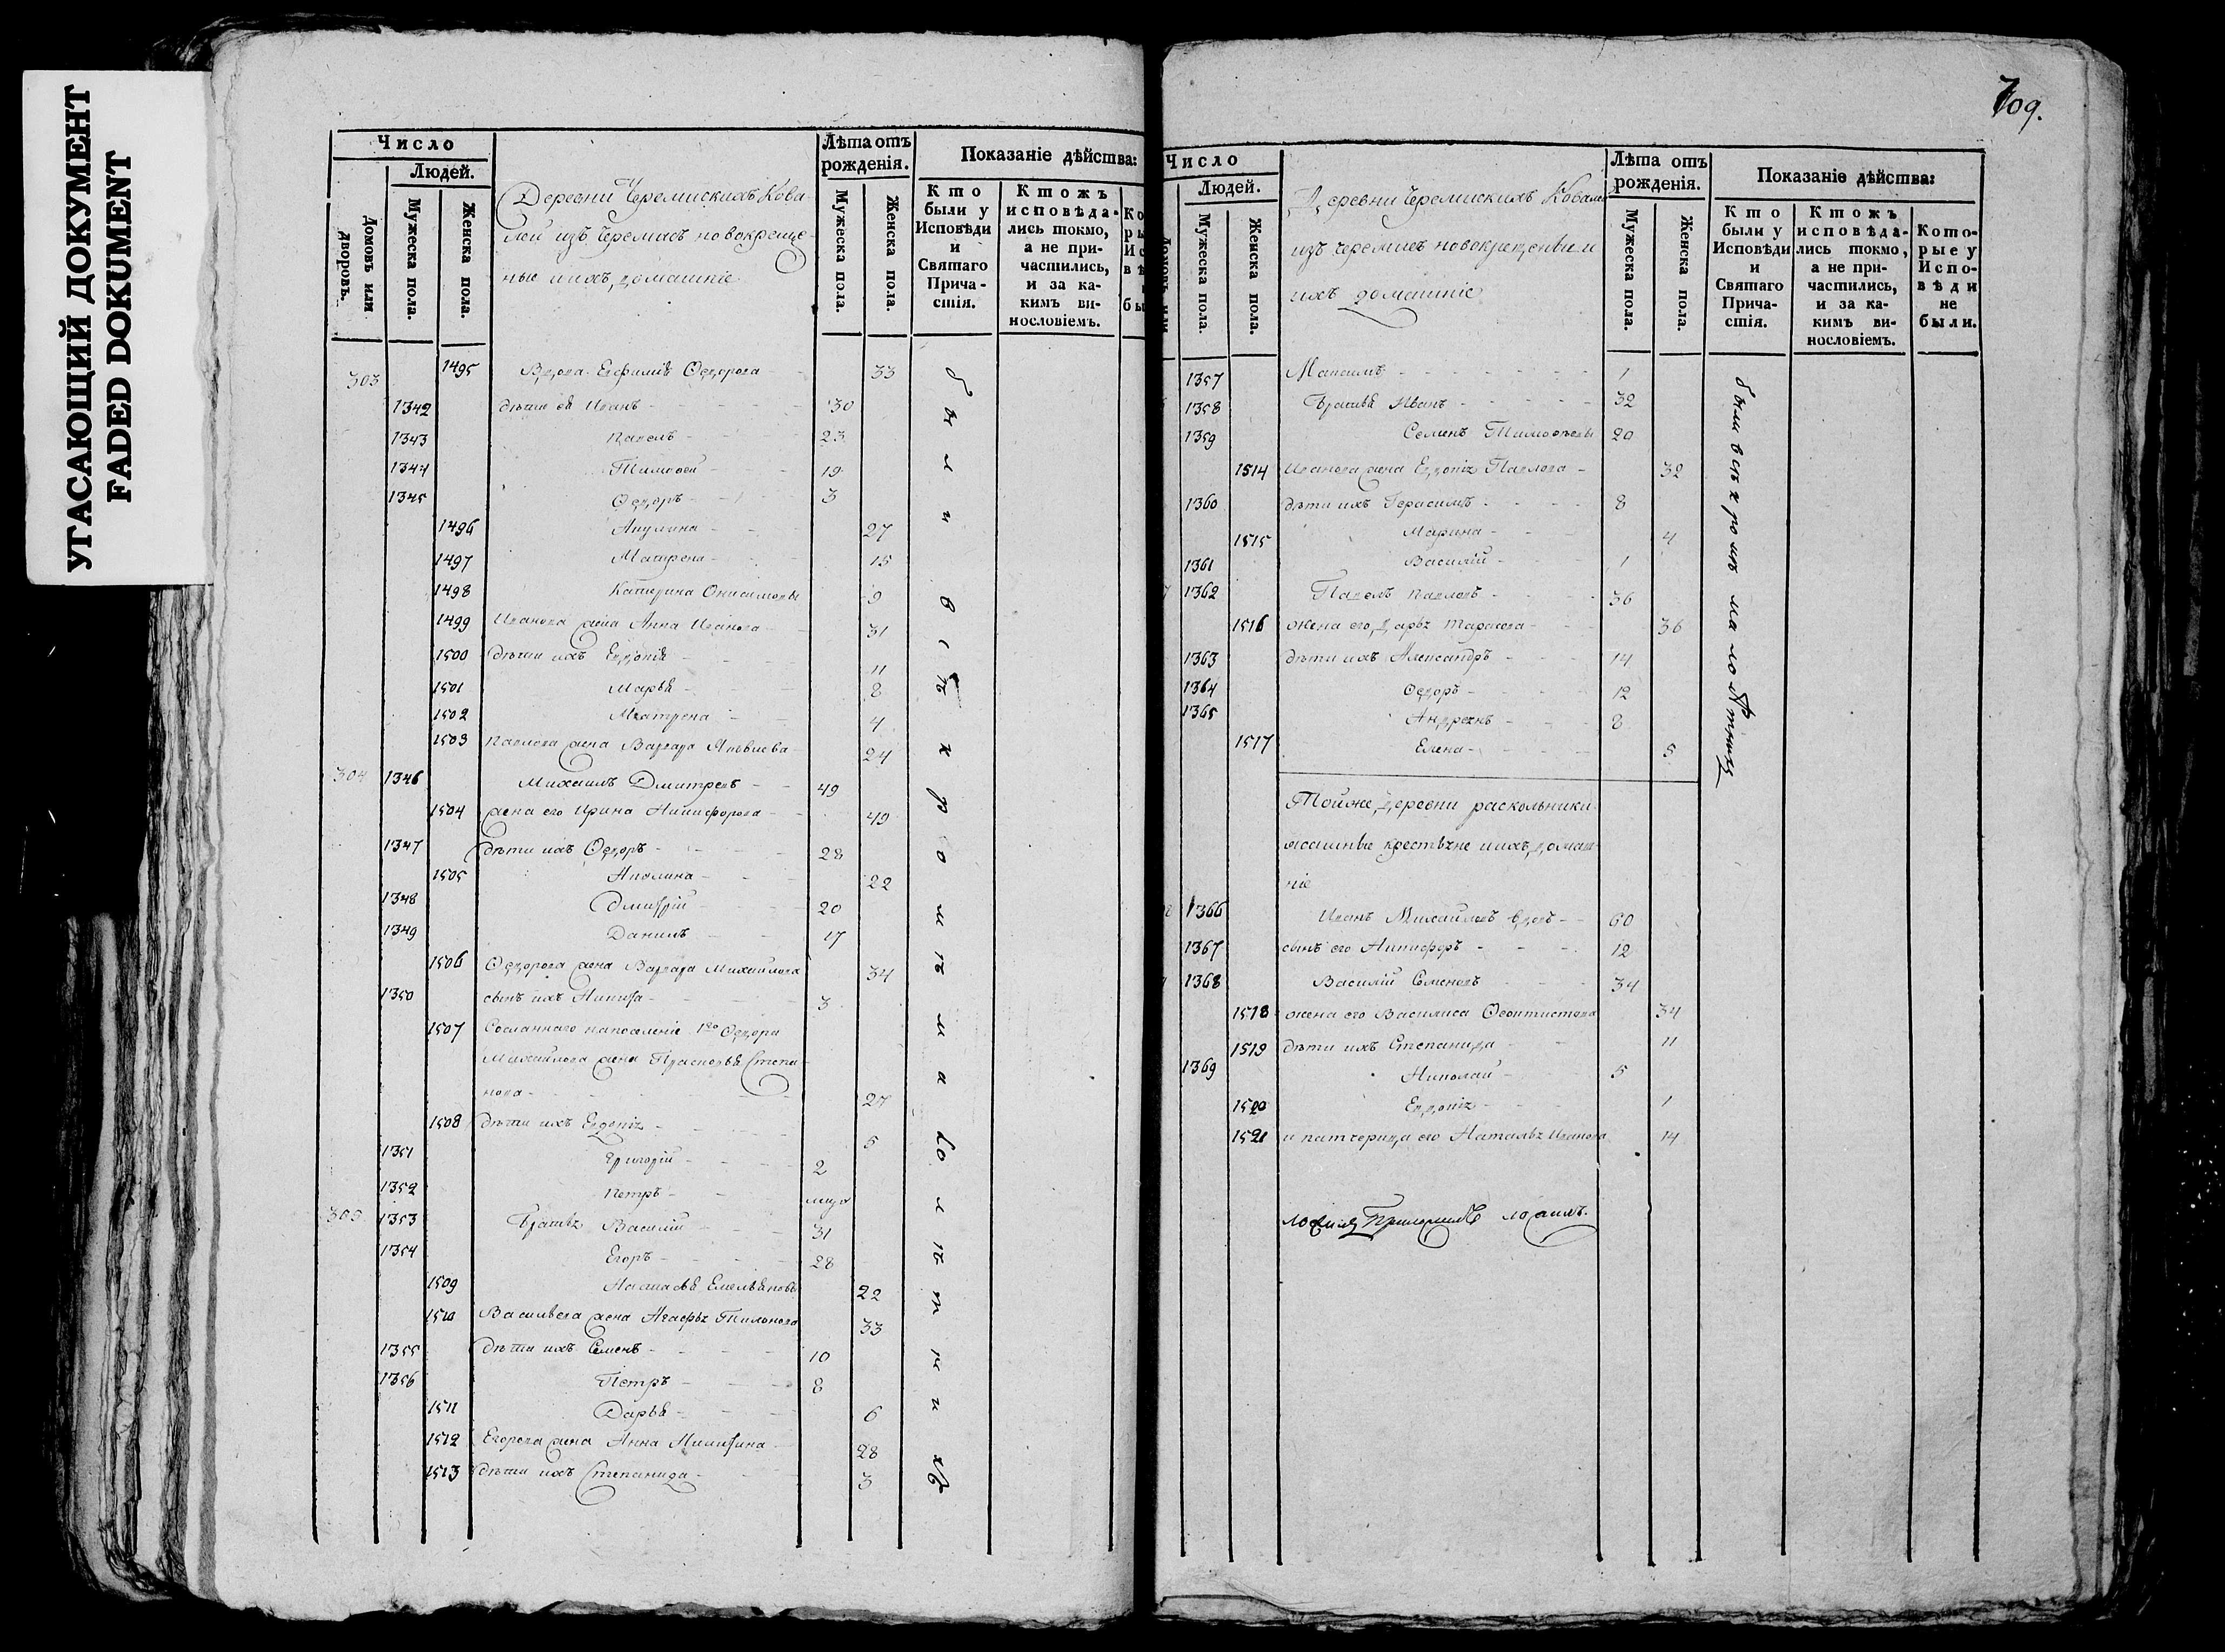 УГАСАЮЩИЙ ДОКУМЕНТ
FADED DOKUMENT
Число
Людей.
Домовъ или дворовъ.
Мужеска пола.
Женска пола.
Деревни Черемискихъ Кова
лей изъ Черемисъ новокреще
ные и ихъ домашніе
Лѣта отъ рожденія.
Мужеска пола.
Женска пола.
Показаніе дѣйства:
Кто были у Исповѣди и Святаго Причастія.
Ктожъ исповѣдались токмо, а не причастились, и за какимъ винословіемъ.
303 1495 Вдова Ефимія Ѳедорова 33
1342 дѣти ея Иванъ 30
1343 Павелъ 23
1344 Тимофей 19
1345 Ѳедоръ 3
1496 Акулина 27
1497 Матрена 15
1498 Катерина Онисимовы 9
1499 Иванова жена Анна Иванова 31
1500 дѣти ихъ Евдокія 11
1501 Марья 8
1502 Матрена 4
1503 Павлова жена Варвара Яковлева 24
304 1346 Михаилъ Дмитревъ 49
1504 жена его Ирина Никифорова 49
1347 дѣти ихъ Ѳедоръ 28
1505 Акулина 22
1348 Дмитрій 20
1349 Данилъ 17
1506 Ѳедорова жена Варвара Михайлова 34
1350 сынъ ихъ Никита 3
1507 Сосланнаго на поселеніе 1го Ѳедора
Михайлова жена Прасковья Степа
нова 27
1508 дѣти ихъ Евдокія 5
1351 Григорій 2
1352 Петръ
305 1353 Братья Василій 31
1354 Егоръ 28
1509 Настасья Емельяновы 22
1510 Васильева жена Агафья 33
1355 дѣти ихъ Семенъ 10
1356 Петръ 8
1511 Дарья 6
1512 Егорова жена Анна Никитина 28
1513 дѣти ихъ Степанида 3
были всѣ кромѣ малолѣтнихъ
709.
Число
Людей.
Мужеска пола.
Женска пола.
Деревни Черемискихъ Ковалей
изъ черемисъ новокрещеные и
ихъ домашніе
Лѣта отъ рожденія.
Мужеска пола.
Женска пола.
Показаніе дѣйства:
Кто были у Исповѣди и Святаго Причастія.
Ктожъ исповѣдались токмо, а не причастились, и за какимъ винословіемъ.
Которые у Исповѣди не были.
1357 Максимъ 1
1358 Братья Иванъ 32
1359 Семенъ Тимофеевы 20
1514 Иванова жена Евдокія Павлова 32
1360 дѣти ихъ Герасимъ 8
1515 Марина 4
1361 Василій 1
1362 Павелъ Павловъ 36
1516 жена его Дарья Тарасова 36
1363 дѣти ихъ Александръ 14
1364 Ѳедоръ 12
1365 Андреянъ 8
1517 Елена 5
были всѣ кромѣ малолѣтнихъ
Тойже деревни раскольники
ясашные крестьяне и ихъ домаш
ніе
1366 Иванъ Михайловъ вдовъ 60
1367 сынъ его Никифоръ 12
1368 Василій Семеновъ 34
1518 жена его Василиса Ѳеоктистова 34
1519 дѣти ихъ Степанида 11
1369 Николай 5
1520 Евдокія 1
1521 и патчерица его Наталья Иванова 14